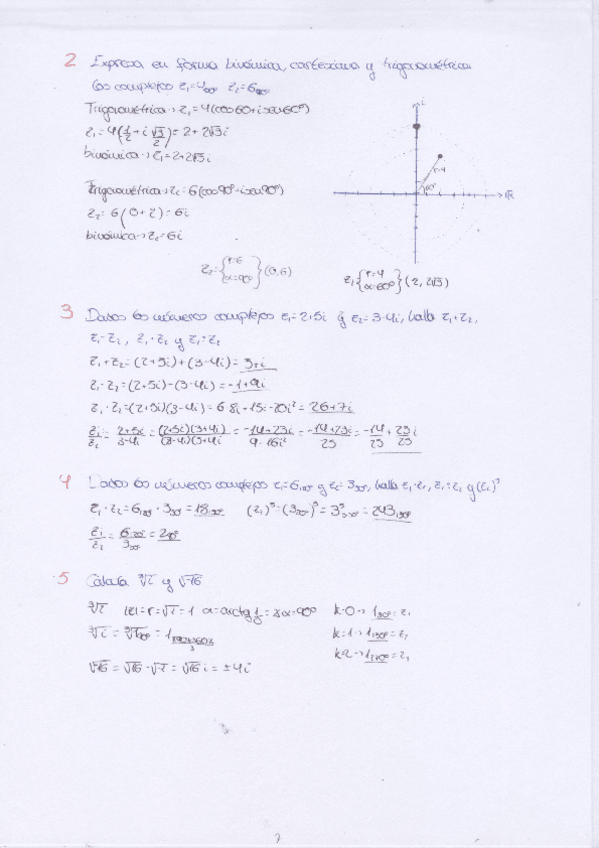 2 Expresa en forma binómica, cartesiana y trigonométrica
los complejos z₁=4₆₀º z₂=6₉₀º
Trigonométrica → z₁=4(cos60+isen60º)
z₁=4(1/2+i √3/2)=2+2√3i
binómica → z₁=2+2√3i
Trigonométrica → z₂=6(cos90º+isen90º)
z₂=6(0+i)=6i
binómica → z₂=6i
i
r=4
60º
R
z₂={r=6 α=90º}(0,6)
z₁{r=4 α=60º}(2,2√3)
3 Dados los números complejos z₁=2+5i y z₂=3-4i, halla z₁+z₂,
z₁-z₂, z₁·z₂ y z₁:z₂
z₁+z₂=(2+5i)+(3-4i)=5+i
z₁-z₂=(2+5i)-(3-4i)=-1+9i
z₁·z₂=(2+5i)(3-4i)=6-8i+15i-20i²=26+7i
z₁/z₂=2+5i/3-4i=(2+5i)(3+4i)/(3-4i)(3+4i)=-14+23i/9-16i²=-14+23i/25=-14/25+23i/25
4 Dados los números complejos z₁=6 y z₂=3, halla z₁·z₂, z₁:z₂ y (z₂)⁵
z₁·z₂=6·3=18 (z₂)⁵=(3)⁵=3⁵=243
z₁/z₂=6/3=2
5 Calcula ∛i y √-16
∛i |z|=r=√1=1 α=arctg 1/0= α=90º
k=0→1₃₀º=z₁
∛i=∛1₉₀º=1
k=1→1₁₅₀º=z₂
k=2→1₂₇₀º=z₃
√-16=√16·√-1=√16i=±4i